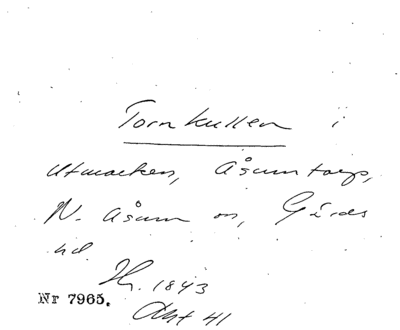 Tornkullen i
utmarken, Åsumtorp,
N. Åsum sn, Gärds
hd.
H. 1843
Nr 7965.
Akt 41